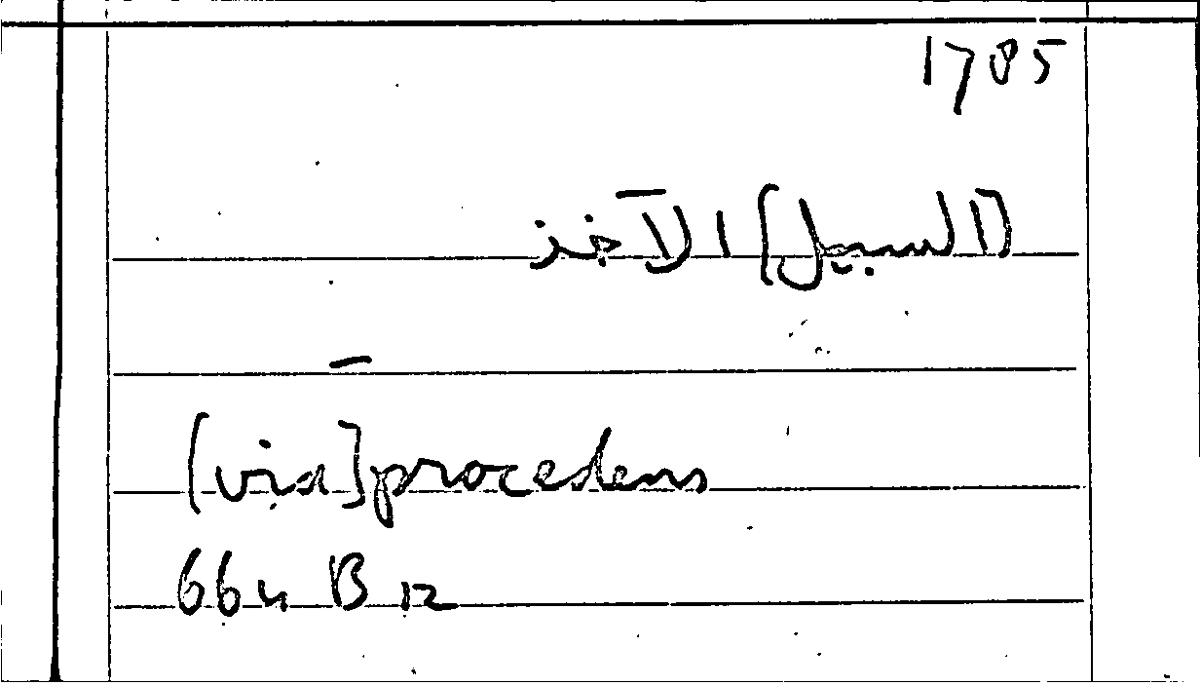 1785
[السبيل] الآخذ
[via] procedens
664 B 12